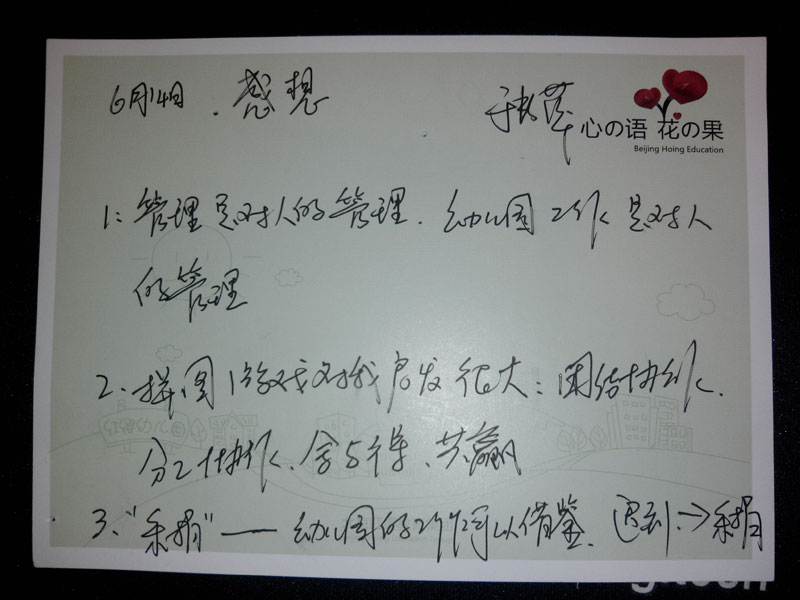 6月14日 . 感想
心の语 花の果
Beijing Hoing Education
1: 管理是对人的管理. 幼儿园工作是对人
的管理
2、拼图游戏对我启发很大: 团结协作、
分工协作、舍与得、共赢
3、"乘捐" —— 幼儿园的工作可以借鉴. 遇到→